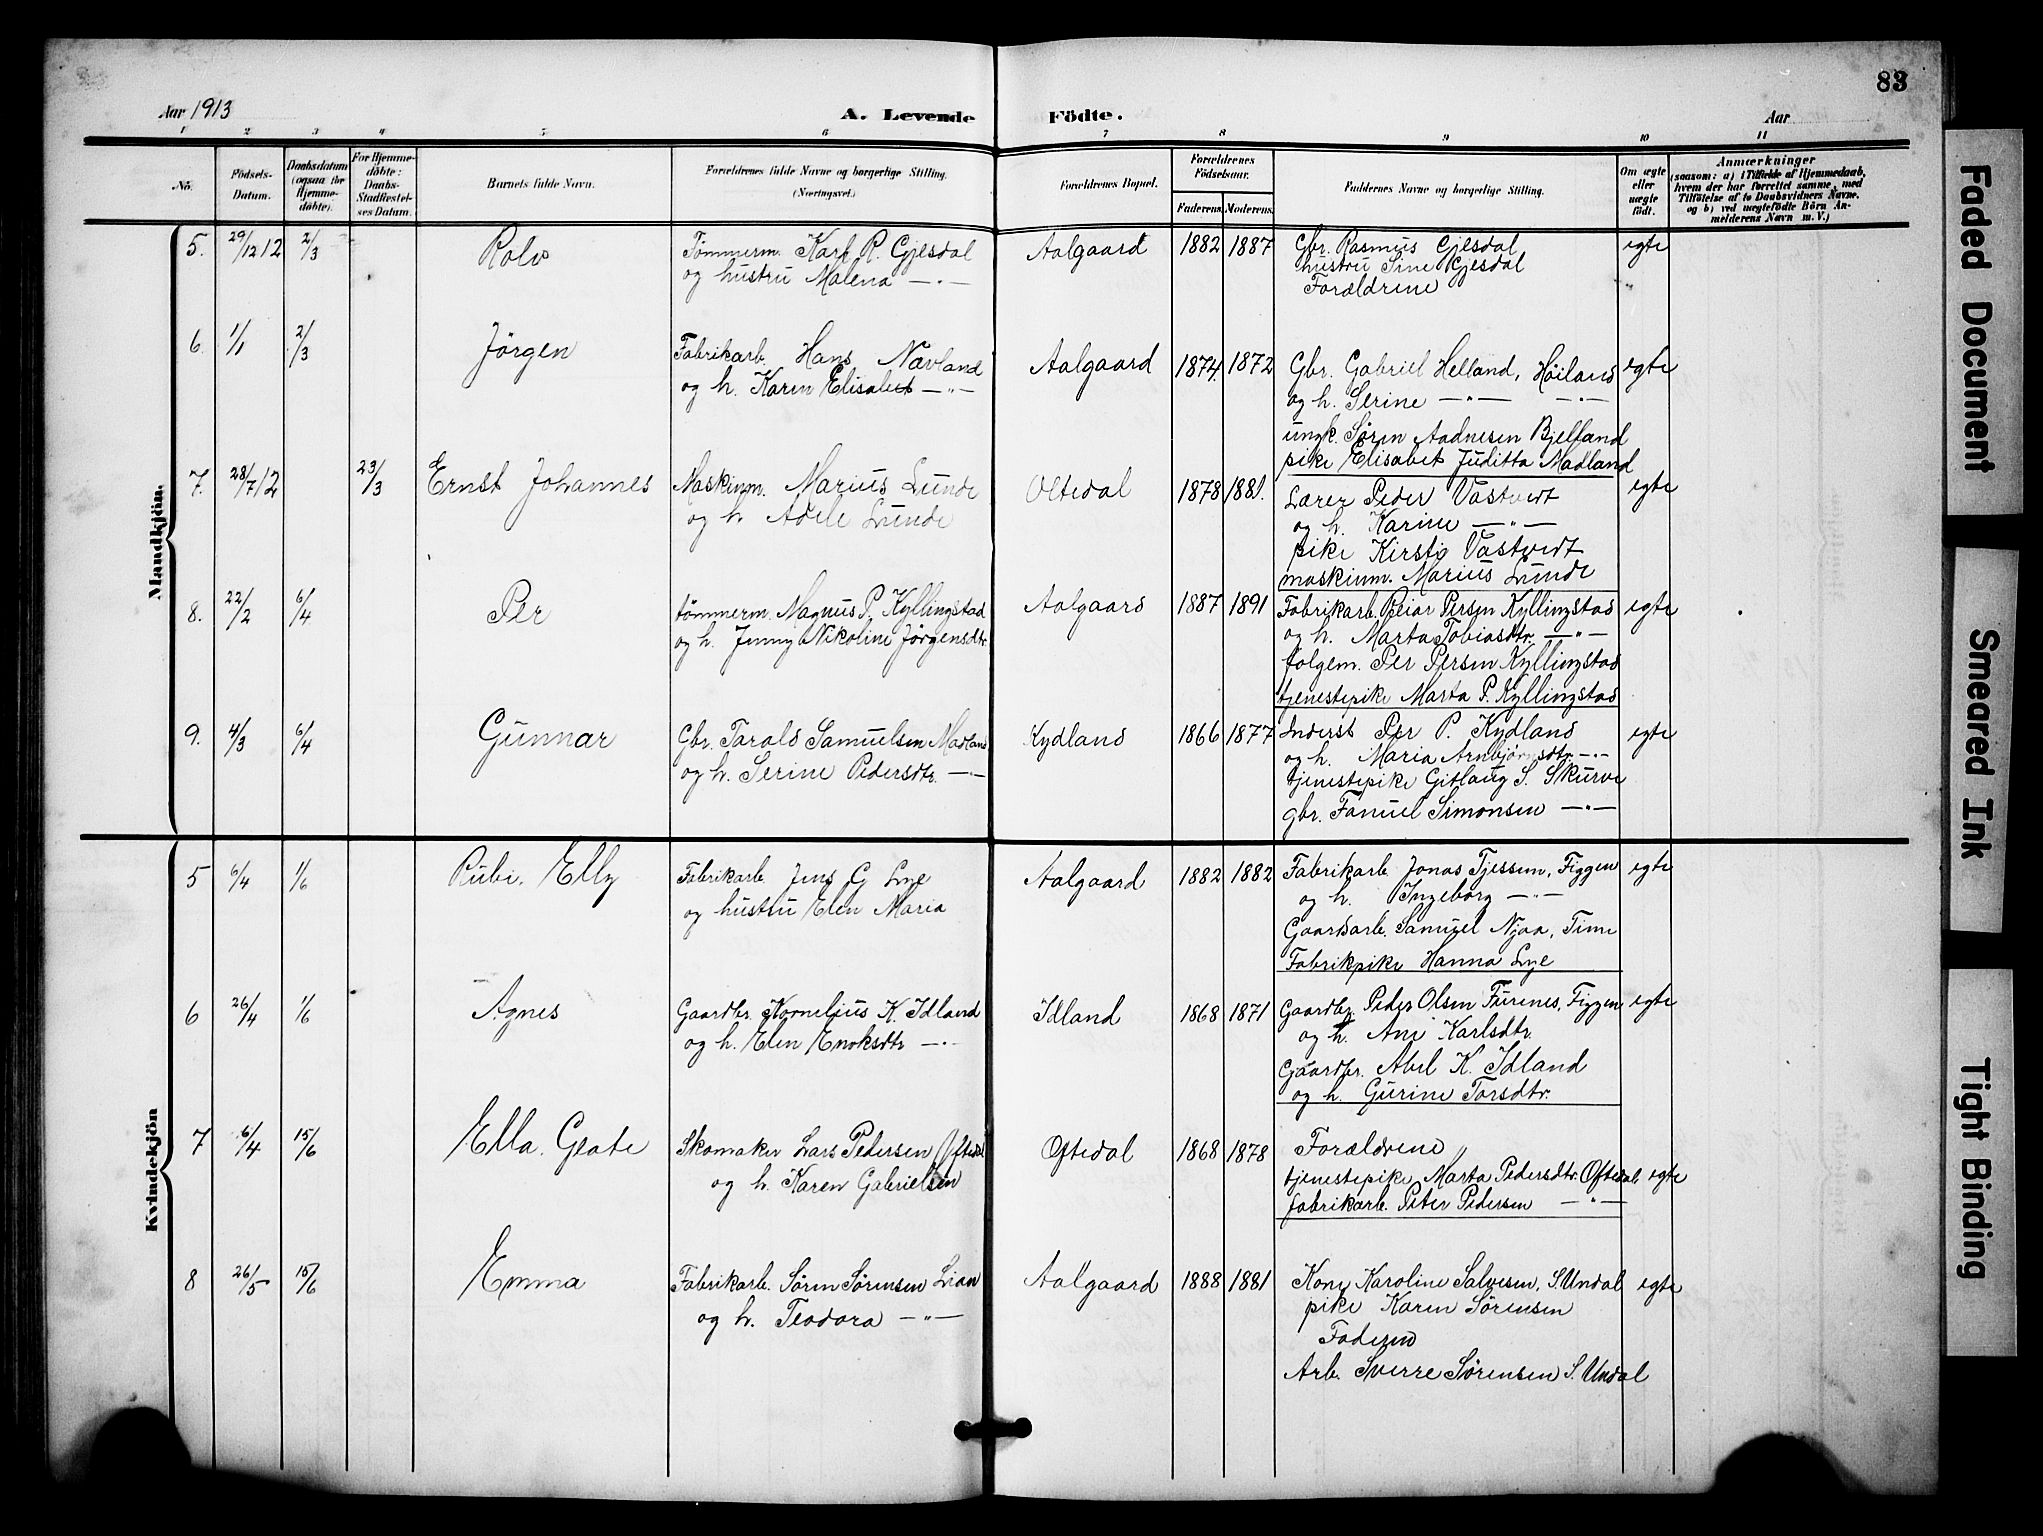 83
Aar 1913
A. Levende Födte.
Aar
1 2 3 4 5 6 7 8 9 10 11
No.
Födsels-Datum.
Daabsdatum (ogsaa for Hjemme-döbte).
For Hjemme-döbte: Daabs-Stadfæstel-ses Datum.
Barnets fulde Navn.
Forældrenes fulde Navne og borgerlige Stilling. (Næringsvei.)
Forældrenes Bopæl.
Forældrenes Födselsaar.
Faderens. Moderens.
Faddernes Navne og borgerlige Stilling.
Om ægte eller uægte födt.
Anmærkninger
(saasom: a) i Tilfælde af Hjemmedaab, hvem der har forrettet samme, med Tilföielse af to Daabsvidners Navne, og b) ved uægtefödte Börn An-melderens Navn m. V.)
Mandkjön.
5. 29/12 12 2/3 Rolv Tømmerm. Karl R. Gjesdal Aalgaard 1882 1887 Gbr. Rasmus Gjesdal egte
og hustru Malena —"— hustru Sine Gjesdal
Forældrene
6. 1/1 2/3 Jörgen Fabrikarb. Hans Navland Aalgaard 1874. 1872 Gbr. Gabriel Helland, Höiland egte
og h. Karen Elisabet —"— og h. Serine —"— —"—
ungk. Sören Aadnesen Bjelland
pike Elisabet Juditta Madland
7. 28/7 12 23/3 Ernst Johannes Maskinm. Marius Lunde Oltedal 1878 1881. Lærer Peder Vastveit egte
og h. Adele Lunde og h. Karine —"—
pike Kirsti Vastveit
maskinm. Marius Lunde
8. 22/2 6/4 Per tömmerm. Magnus P. Kyllingstad Aalgaard 1887 1891 Fabrikarb. Peiar Persen Kyllingstad egte
og h. Jenny Nikoline Jörgensdtr. og h. Marta Tobiasdtr. —"—
folgem. Per Persen Kyllingstad
tjenestepike Marta P. Kyllingstad
9. 4/3 6/4 Gunnar Gbr. Tarald Samuelsen Madland Kydland 1866 1877 Inderst Per P. Kydland egte
og h. Serine Pedersdtr. —"— og h. Maria Arnbjørnsdtr. —"—
tjenestepike Gitlaug S. Skurve
gbr. Fanuel Simonsen —"—
Kvindekjön
5 6/4 1/6 Rubi. Elly Fabrikarb. Jens G Lye Aalgaard 1882 1882 Fabrikarb. Jonas Tjessem, Figgen egte
og hustru Elen Maria og h. Ingeborg —"—
Gaardsarb. Samuel Njaa, Time
Fabrikpike Hanna Lye
6 26/4 1/6 Agnes Gaardbr. Kornelius K. Idland Idland 1868 1871 Gaardbr. Peder Olsen Furenes, Figgen egte
og h. Elen Enoksdtr —"— og h. Ane Karlsdtr.
Gaardbr. Abel K. Idland
og h. Gurine Torsdtr.
7 6/4 15/6 Ella. Geate Skomaker Lars Pedersen Oftedal Oftedal 1868 1878 Forældrene
og h. Karen Gabrielsen tjenestepike Marta Pedersdtr. Oftedal. egte
fabrikarb. Peter Pedersen —"—
8 26/5 15/6 Emma Fabrikarb. Sören Sörensen Lian Aalgaard 1888 1881 Kone Karoline Salvesen, S. Undal egte
og h. Teodora —"— pike Karen Sörensen
Faderen
Arb. Sverre Sörensen S. Undal
Faded Document
Smeared Ink
Tight Binding